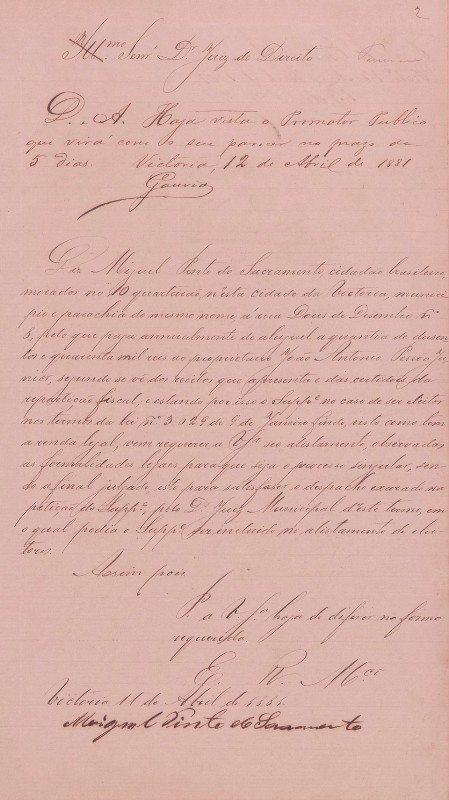 2
Illmo. Senr. Dr. Juiz de Direito
D. A. Haja vista o Promotor Publico
que virá com o seu parecer no prazo de
5 dias. Victoria, 12 de Abril de 1881
Gouvêa
Diz Miguel Pinto do Sacramento, cidadão brasileiro,
morador no 10 quarteirão, n'esta cidade da Victoria, munici
pio e parochia do mesmo nome, á rua Dous de Desembro nº
8, pelo que paga annualmente de aluguel a quantia de dusen
tos e quarenta mil reis ao proprietario João Antonio Ju
nior, segundo se vê dos recibos que apresenta e das certidões da
repartição fiscal, e estando por isso o Suppe. no caso de ser eleitor
nos termos da lei, nº 3029 de 9 de Janeiro findo, visto como tem
a renda legal, vem requerer a V. Sa. seo alistamento, observadas
as formalidades legaes para que seja o processo singular, sen
do a final julgado, isto para satisfaser o despacho exarado na
petição do Suppe., pelo Dr. Juiz Municipal d'este termo, em
o qual pedia o Suppe. ser incluido no alistamento de elei
tores.
Assim pois
P. a V. Sa. haja de deferir na forma
requerida.
E. R. Mce.
Victoria 11 de Abril de 1881.
Miguel Pinto do Sacramento